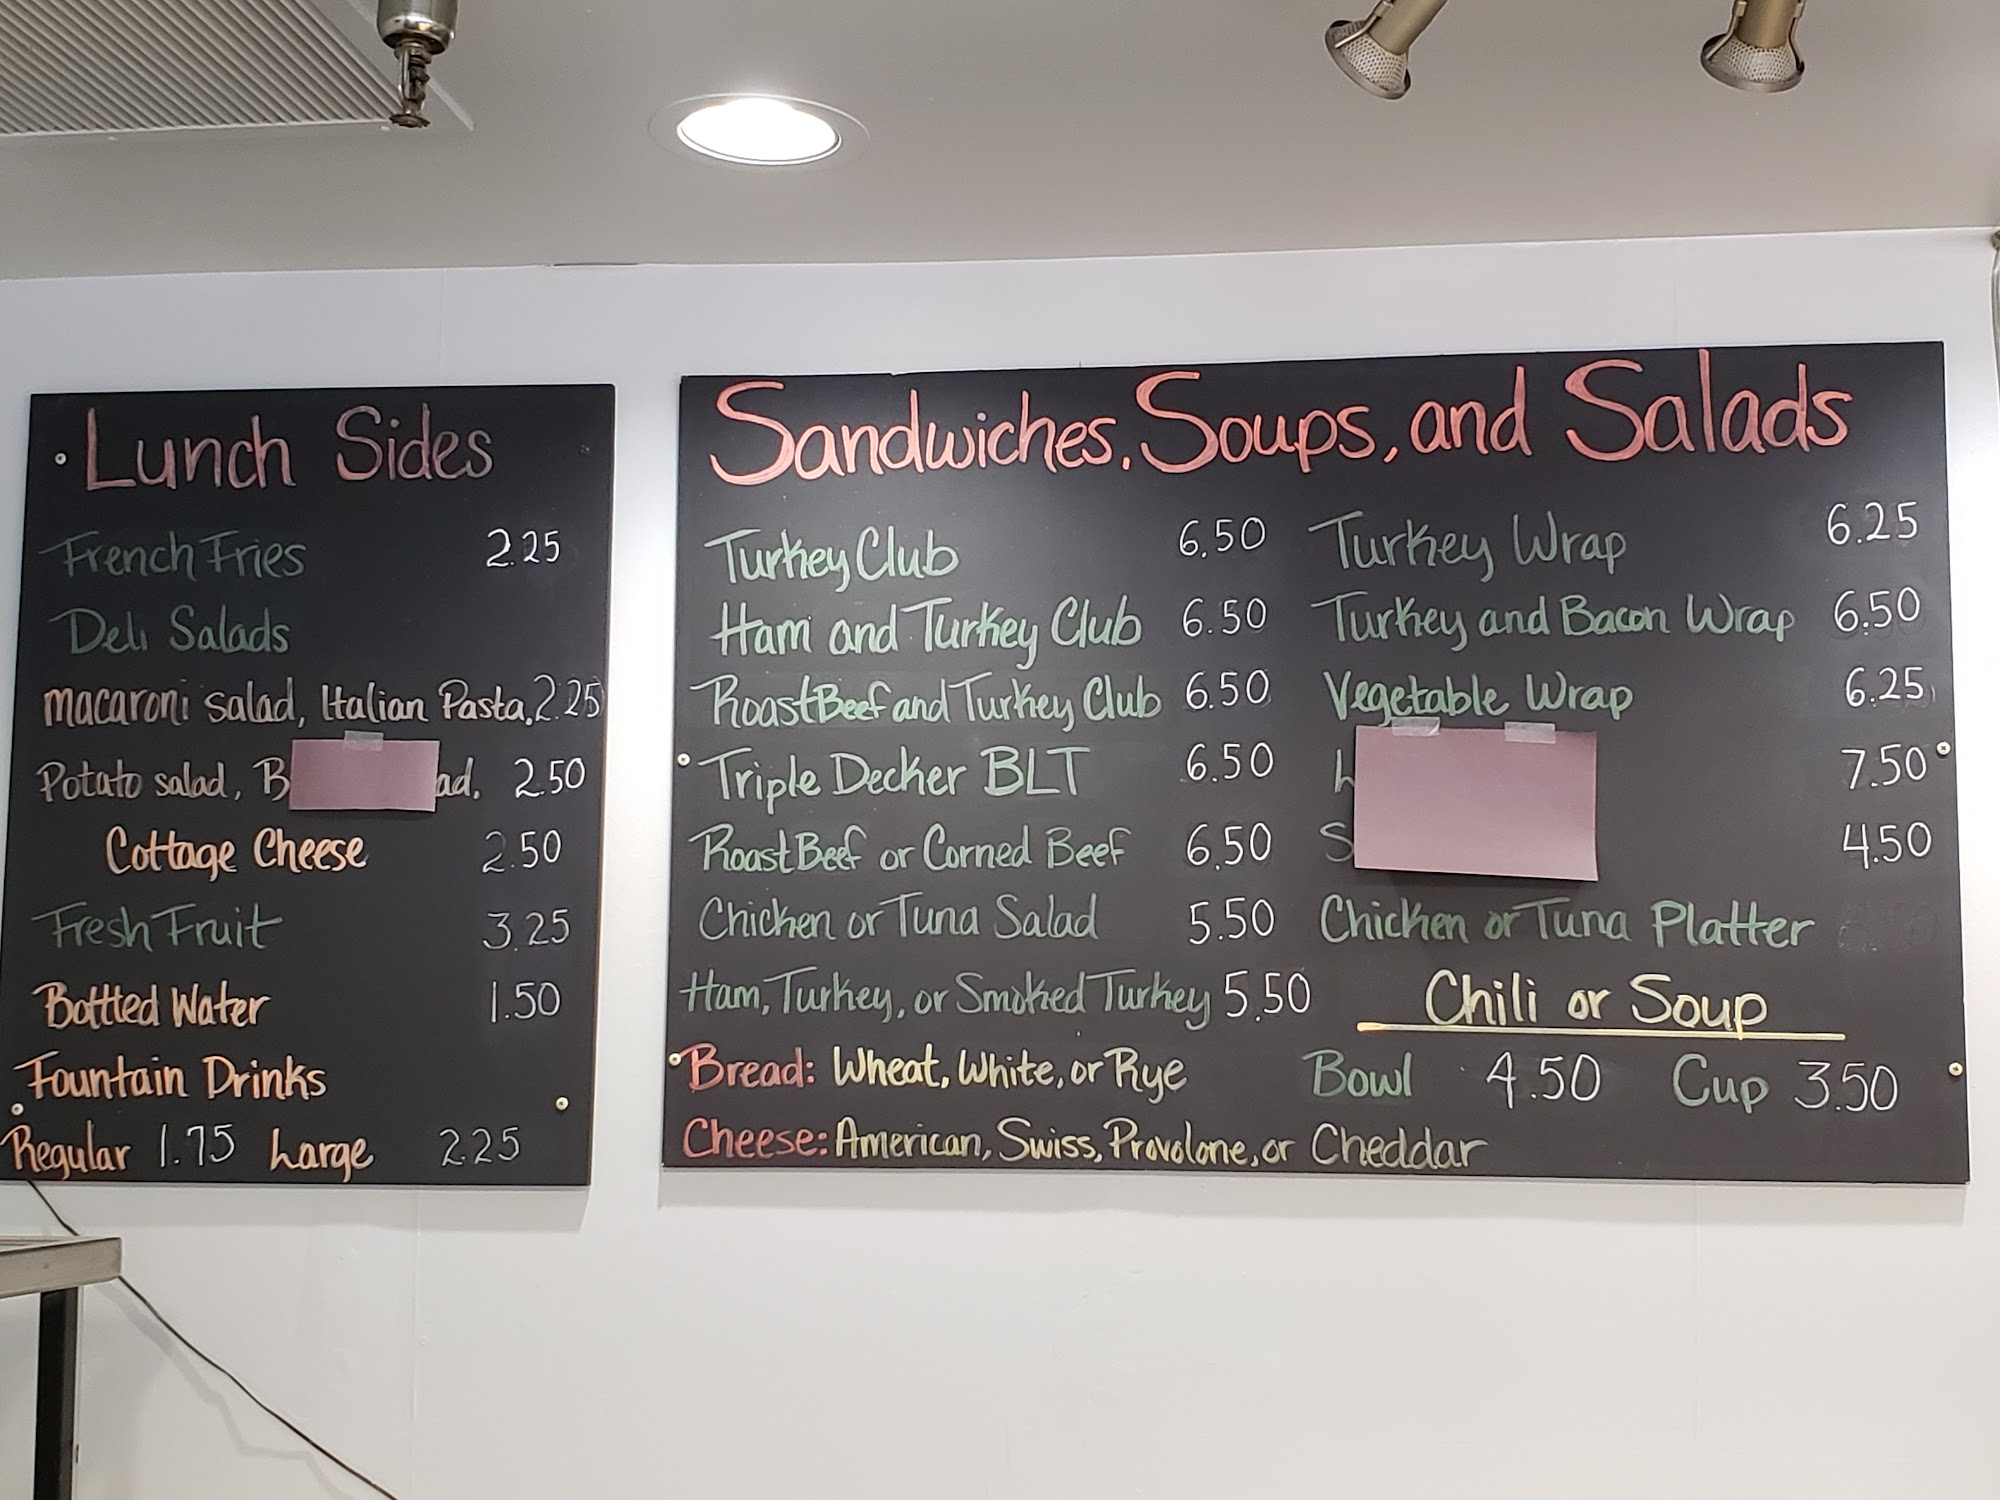 Lunch Sides
French Fries 2.25
Deli Salads
macaroni salad, Italian Pasta, 2.25
Potato salad, 2.50
Cottage Cheese 2.50
Fresh Fruit 3.25
Bottled Water 1.50
Fountain Drinks
Regular 1.75 Large 2.25
Sandwiches, Soups, and Salads
Turkey Club 6.50
Ham and Turkey Club 6.50
Roast Beef and Turkey Club 6.50
Triple Decker BLT 6.50
Roast Beef or Corned Beef 6.50
Chicken or Tuna Salad 5.50
Ham, Turkey, or Smoked Turkey 5.50
Bread: Wheat, White, or Rye
Cheese: American, Swiss, Provolone, or Cheddar
Turkey Wrap 6.25
Turkey and Bacon Wrap 6.50
Vegetable Wrap 6.25
7.50
4.50
Chicken or Tuna Platter
Chili or Soup
Bowl 4.50 Cup 3.50